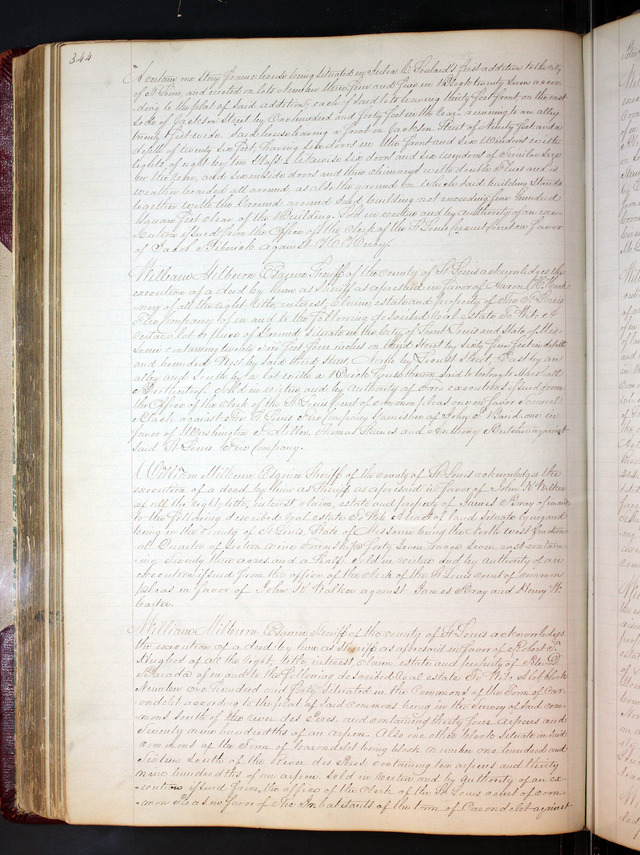 344
A certain one story frame house being situated in Julia C. Soulard's first addition to the city
of St Louis, and erected on lots number three four and five in Block twenty seven accor
ding to the plat of said addition, each of said lots having thirty feet front on the east
side of Jackson Street by One hundred and forty feet in the large running to an alley
twenty feet wide. Said house having a front on Jackson Street of Ninety feet and a
depth of twenty six feet, having six doors in the front and six Windows with
lights of eight by ten Glass, likewise six doors and six windows of similar size
in the rear, and six inside doors and three chimneys with double flues and is
weather boarded all around, as also the ground on which said building stands
together with the Ground around said building not exceeding five hundred
square feet clear of the Building. Sold in virtue and by authority of an exe-
cution issued from the office of the Clerk of the St Louis circuit court in favor
of Jacob against
William Milburn Esquire Sheriff of the county of St Louis acknowledges the
execution of a deed by him as Sheriff as aforesaid in favor of Aaron
of all the right, title, interest, claim, estate and property of The St Louis
Company of in and to the following described real estate To Wit: A
certain lot or piece of Ground, situate in the City of Saint Louis and State of Mis-
souri containing twenty feet inches on third Street by Sixty five feet in depth
and bounded West by said third Street, North by Street, East by an
alley and South by a lot with a Brick house thereon said to belong to Marshall
Sold in virtue and by authority of two executions issued from
the office of the Clerk of the St Louis court of common pleas one in favor Samuel
against St Louis Company Garnishee of John one in
favor of Washington Thomas and Anthony against
said St Louis Company.
William Milburn Esquire Sheriff of the county of St Louis acknowledges the
execution of a deed by him as Sheriff as aforesaid in favor of John W Walker
of all the right, title, interest claim, estate and property of James Bray of in and
to the following described real estate To Wit: A tract of land situate lying and
being in the county of St Louis, State of Missouri being the North west fractio
al Quarter of Section nine Township forty seven, range seven east contain
ing Seventy three acres and a half. Sold in virtue and by authority of an
execution issued from the office of the Clerk of the St Louis court of common
pleas in favor of John W Walker against James Bray and Henry W
William Milburn Esquire Sheriff of the county of St Louis acknowledges
the execution of a deed by him as Sheriff as aforesaid in favor of Robert F.
Hughes of all the right, title interest, claim, estate and property of Peter D.
of in and to the following described real estate To Wit: A lot block
Number One hundred and forty, situated in the Commons of the Town of Car-
ondelet according to the plat of said Commons being in the survey of said com-
mons South of the river des Peres, and containing thirty four arpens and
Seventy nine hundredths of an arpen. Also one other block situate in said
commons of the Town of Carondelet being block number one hundred and
Sixteen South of the River des Peres, containing ten arpens and thirty
nine hundredths of an arpen. Sold in virtue and by authority of an ex-
ecution issued from the office of the Clerk of the St Louis court of com-
mon pleas in favor of The Inhabitants of the town of Carondelet against